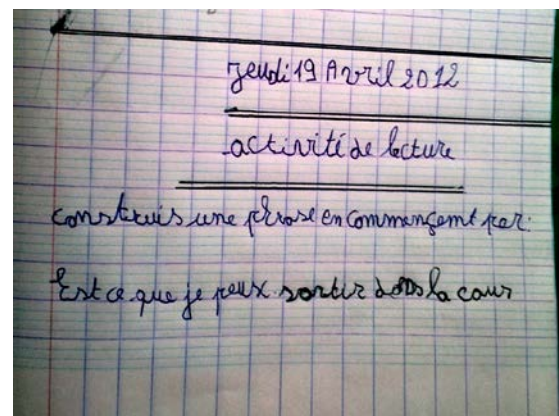 jeudi 19 Avril 2012
activité de lecture
construis une phrase en commençamt par:
Est ce que je peux sortir dans la cour